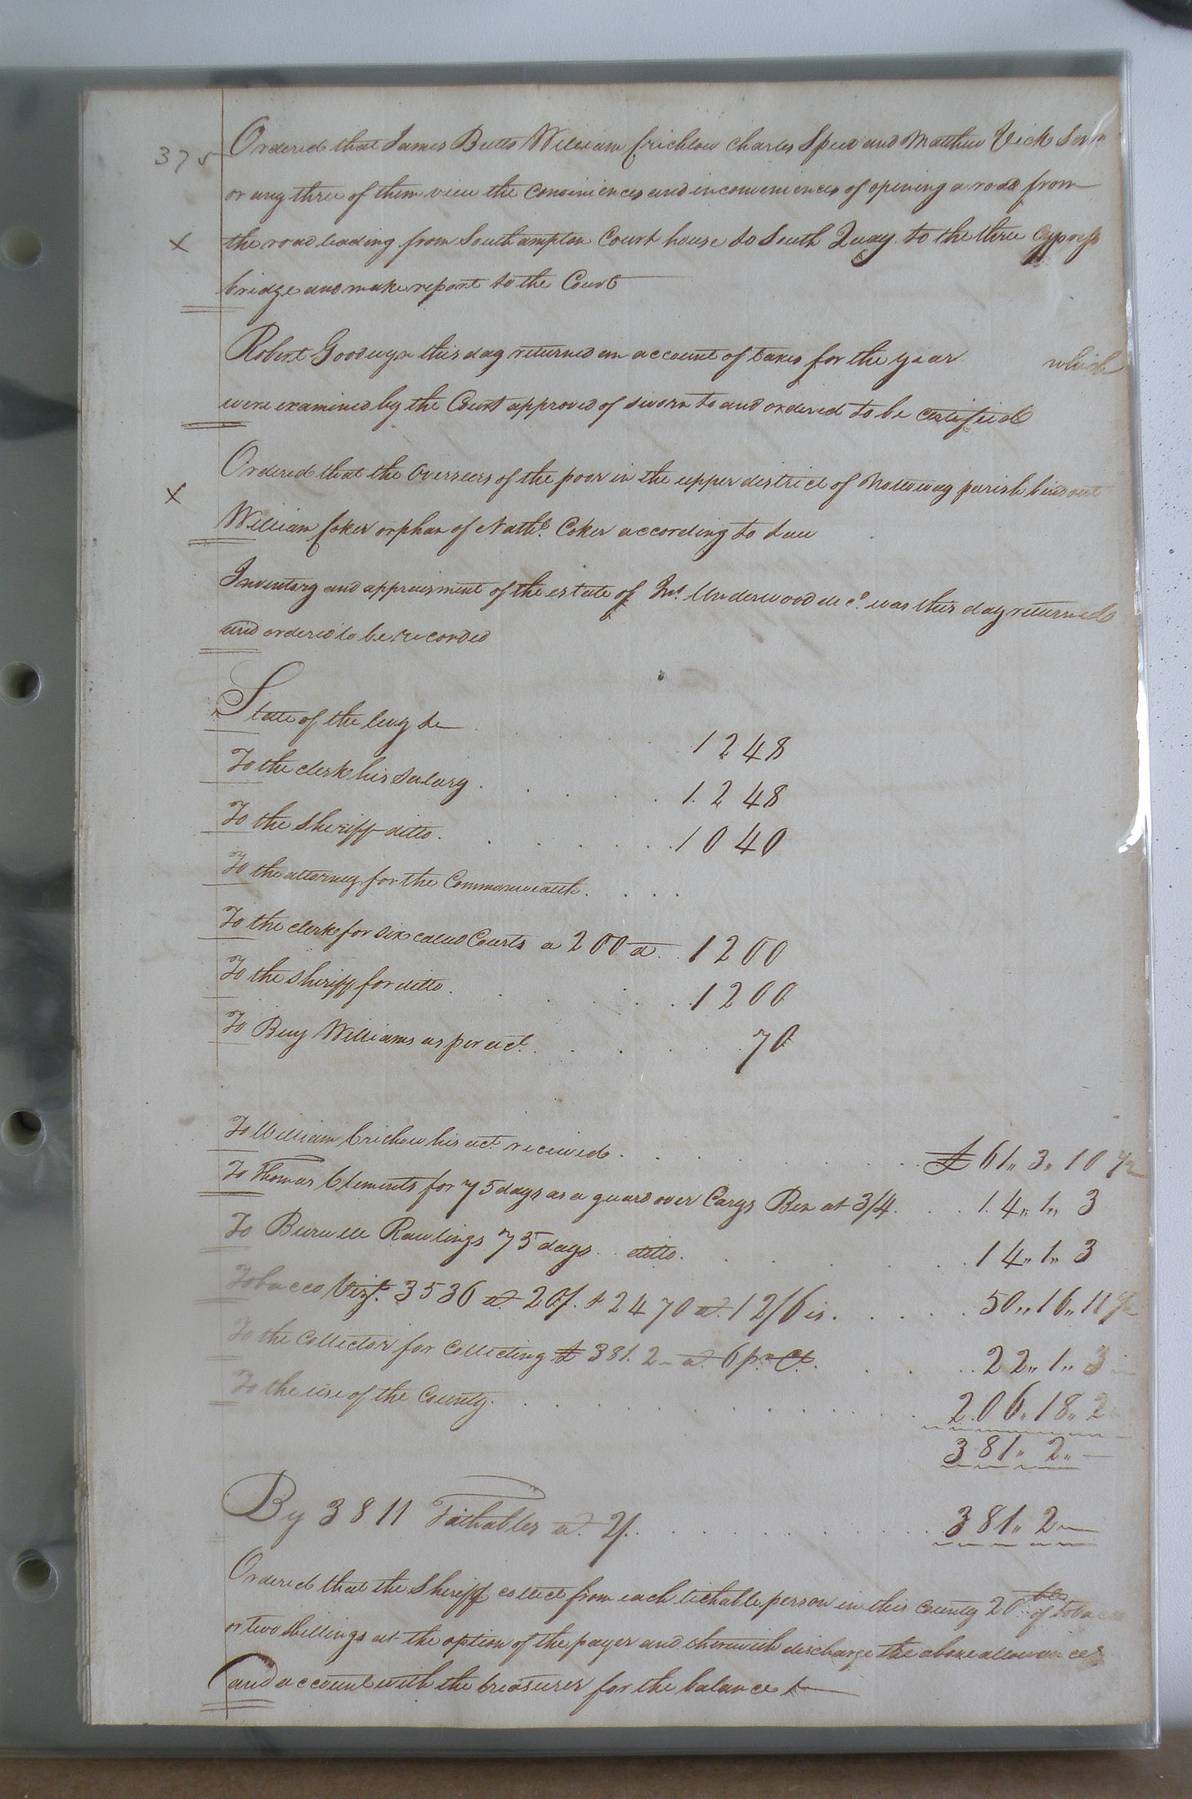 375
Ordered that James Butts William Crichlow Charles Speed and Matthew Vick Senr
or any three of them view the conveniences and inconveniences of opening a road from
X the road leading from Southampton Court house to South Quay to the three Cypress
bridge and make report to the Court
Robert Goodwyn this day returned an account of taxes for the year which
were examined by the Court approved of sworn to and ordered to be certified
Ordered that the Overseers of the poor in the upper district of Nottoway parish bind out
X William Coker orphan of Nathl. Coker according to Law
Inventory and appraisment of the estate of Jno. Underwood decd. was this day returned
and ordered to be recorded
State of the levy
1248
To the clerk his salary . . . . . 1248
To the Sheriff ditto . . . . . . 1040
To the attorney for the Commonwealth . . . .
To the clerk for six called Courts a 200 a . 1200
To the sheriff for ditto . . . . . . 1200
To Benj Williams as per act . . . . . 70
To William Crichlow his act received . . . . . . £61,, 3,, 10 1/2
To Thomas Clements for 75 days as a guard over Carys Ben at 3/9 . . . 14,, 1,, 3
To Burwell Rawlings 75 days ditto . . . . . . 14,, 1,, 3
Tobacco Vizt. 3536 at 20/. & 2470 at 12/6 is . . . . 50,, 16,, 11 1/2
To the Collector for Collecting £381. 2 - at 6 pr. Ct. . . . . 22,, 1,, 3
To the use of the County . . . . . . . . 206,, 18,, 2
381,, 2,, —
By 3811 Tithables at 2/. . . . . . . . . 381,, 2 —
Ordered that the Sheriff collect from each tithable person in this County 20 lbs of tobacco
or two shillings at the option of the payer and therewith discharge the above allowances
and account with the treasurer for the balance